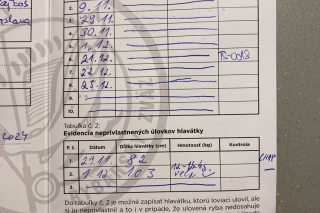 2. 9.11.
3. 29.11.
4. 30.11.
5. 1.12.
6. 21.12.
7. 22.12.
8.
9.
10.
2024
Tabuľka č. 2:
Evidencia neprivlastnených úlovkov hlavátky
P. č. Dátum Dĺžka hlavátky (cm) Hmotnosť (kg) Kontrola
1. 29.11. 82
2. 1.12 103
3.
Do tabuľky č. 2 je možné zapísať hlavátku, ktorú loviaci ulovil, ale
si ju neprivlastnil a to i v prípade, že ulovená ryba nedosahuje